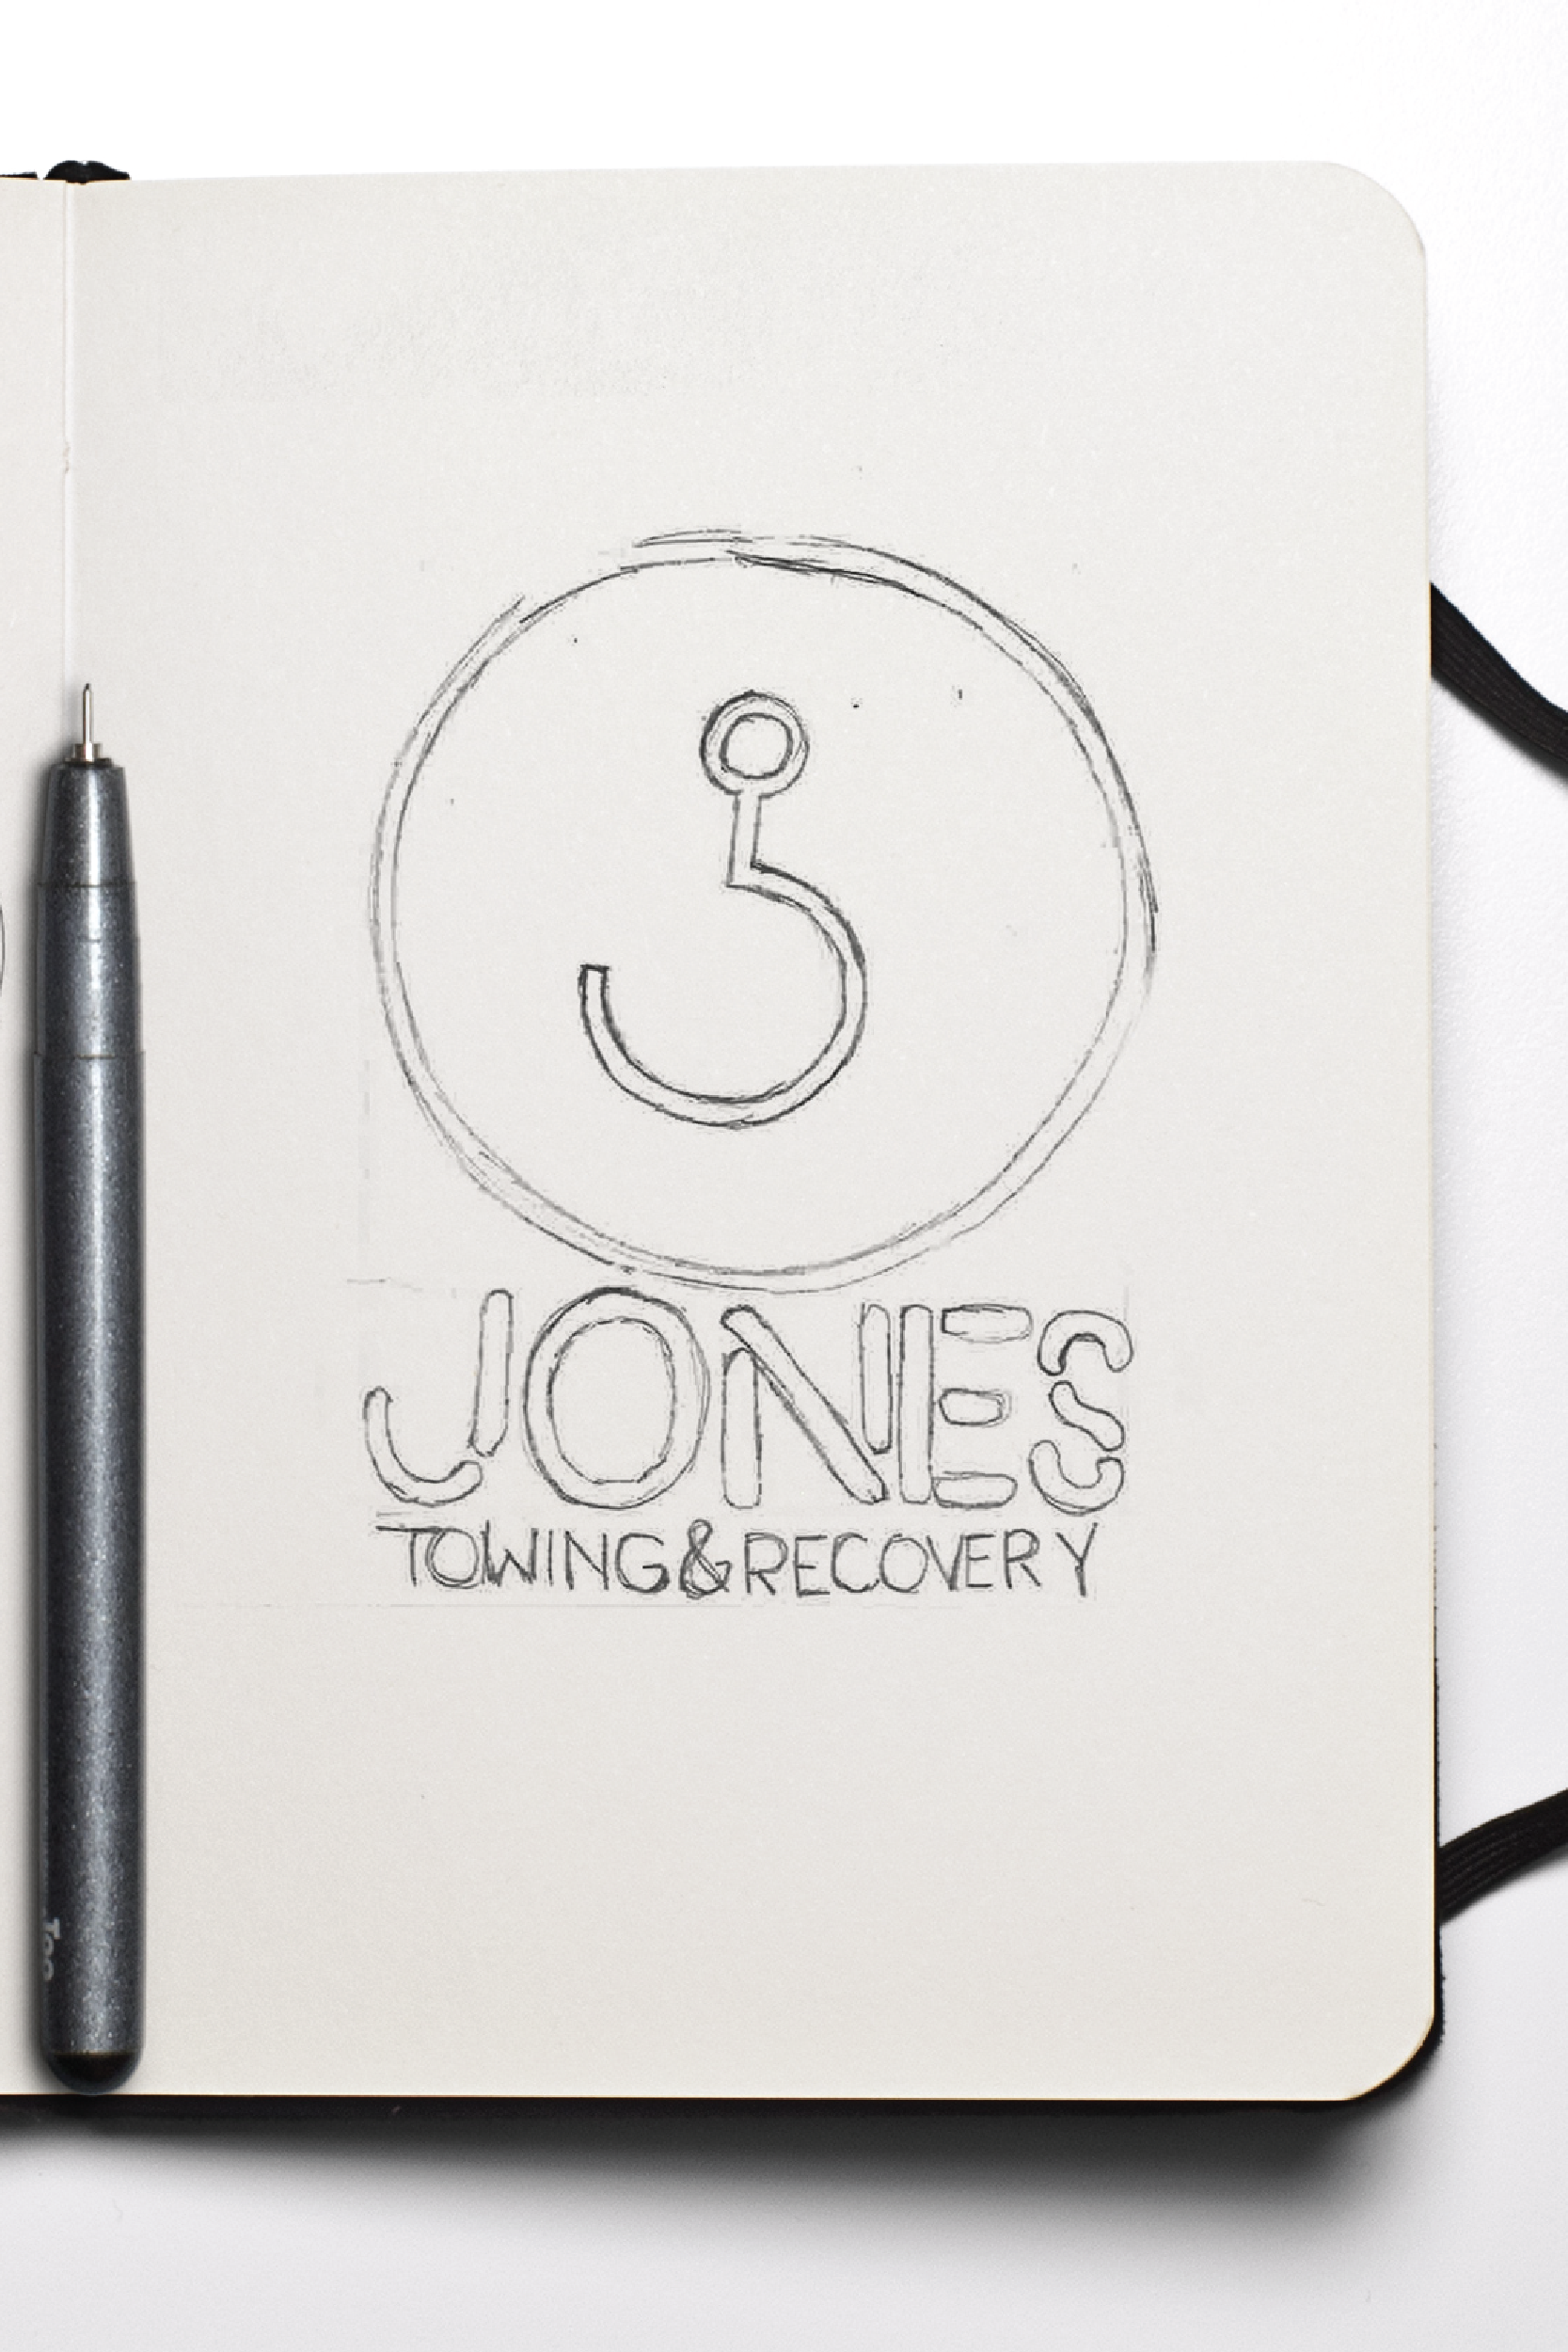 JONES
TOWING&RECOVERY